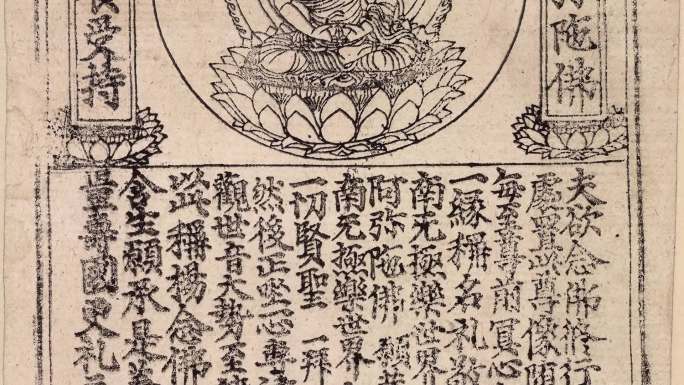 陁佛
受持
夫欲念佛修行
處置此尊像
每至尊前冥心
一緣稱名礼敬
南无極樂世界
阿弥陁佛 願共
南无極樂世界
一切賢聖 一拜
然後正坐一心專注
觀世音大勢至
此稱揚念佛
含生願承是善